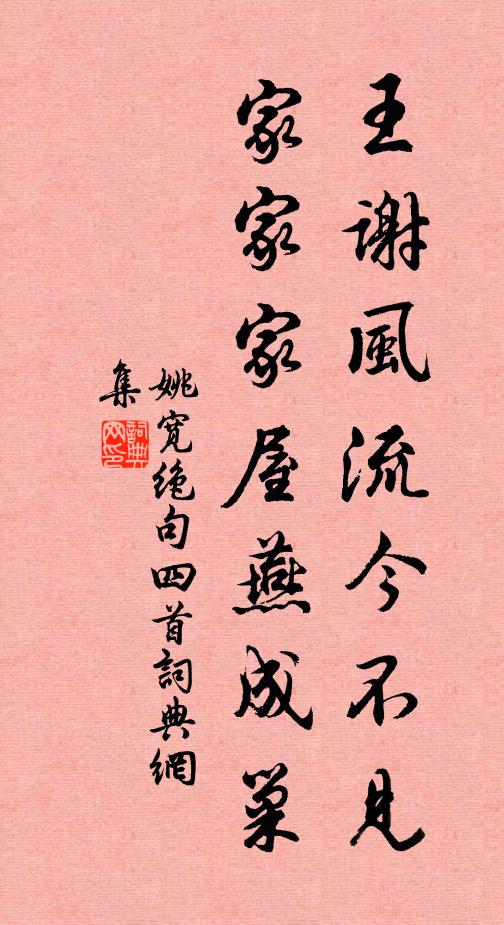 王謝風流今不見
家家家屋燕成巢
姚寬絶句四首詞典網
集
詞典
网印